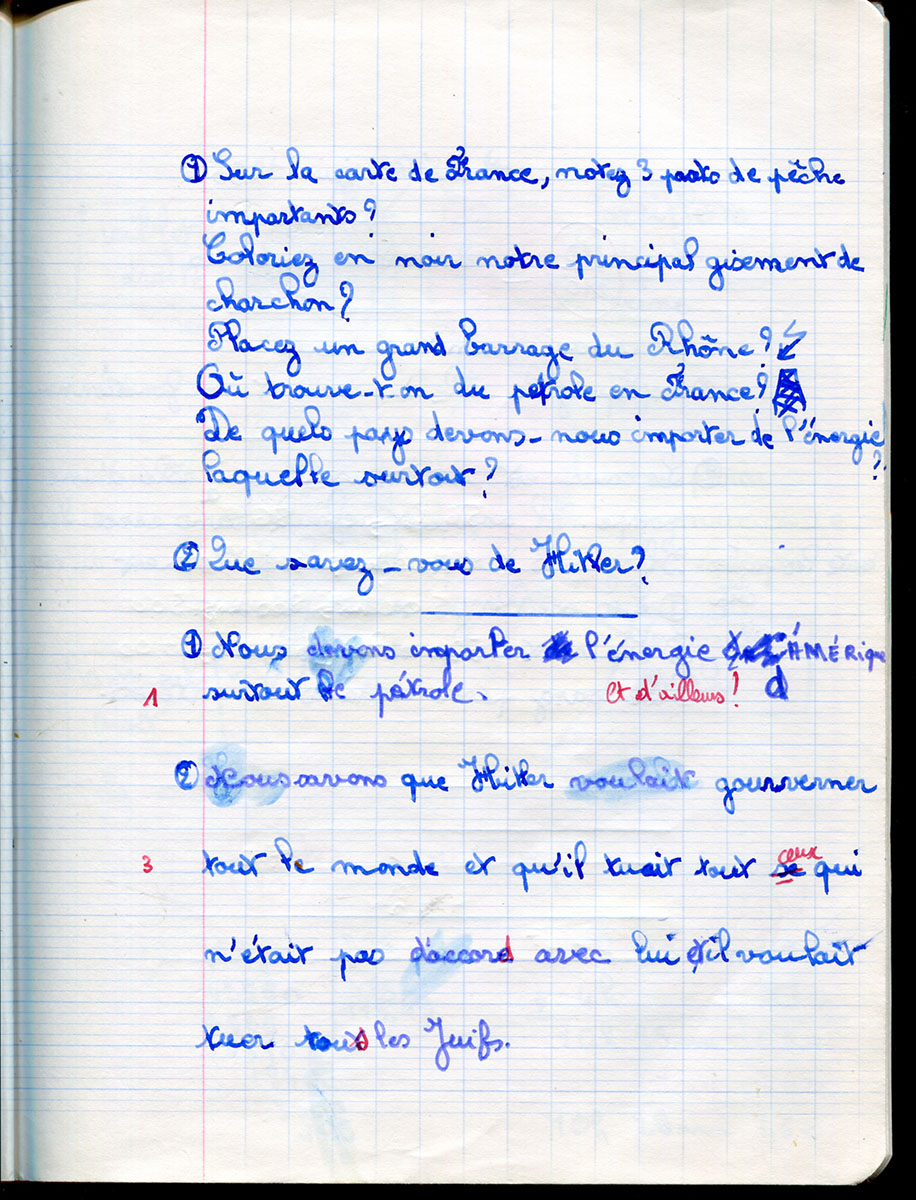 ① Sur la carte de France, notez 3 ports de pêche
importants ?
Coloriez en noir notre principal gisement de
charchon ?
Placez un grand barrage du Rhône ?
Où trouve-t-on du pétrole en France ?
De quels pays devons-nous importer de l'énergie
laquelle surtout ? ?
② Que savez-vous de Hitler ?
① Nous devons importer l'énergie d'AMÉRIQUE
1 surtout le pétrole. et d'ailleurs !
② Nous savons que Hitler voulait gouverner
3 tout le monde et qu'il tuait tout se ceux qui
n'était pas d'accord avec lui et il voulait
tuer tous les Juifs.